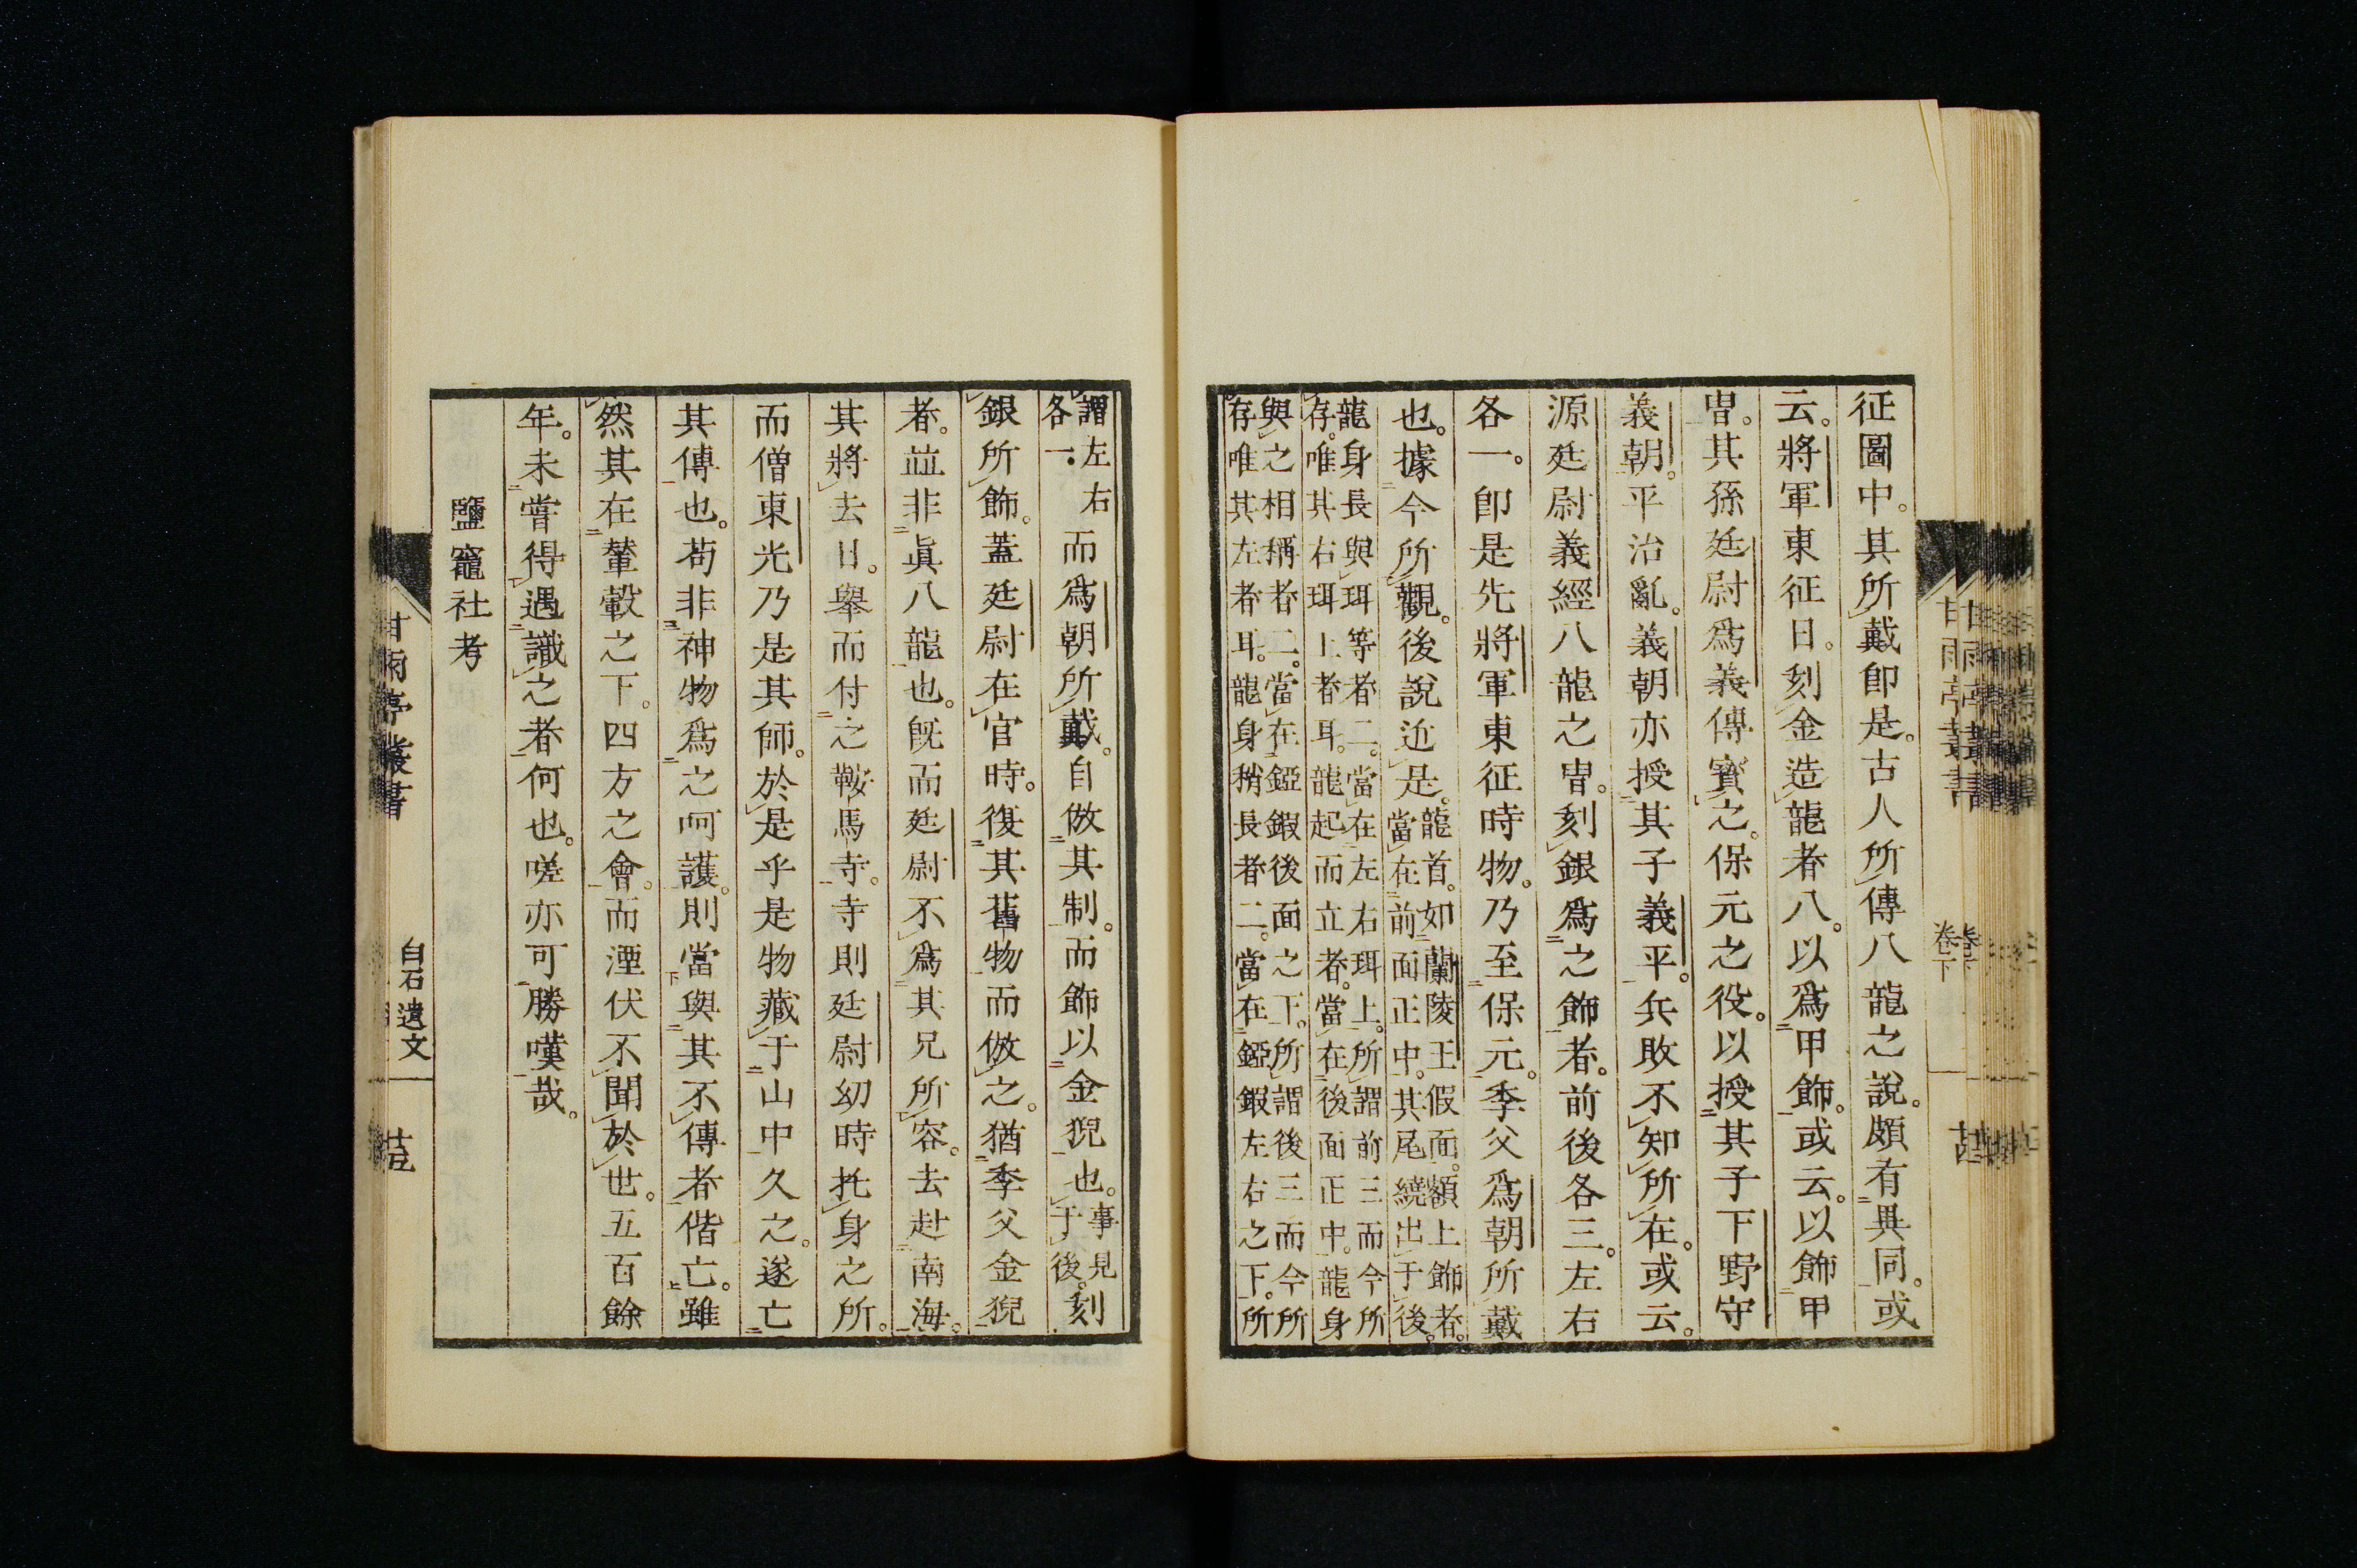 征圖中。其所戴即是。古人所傳八龍之說。頗有異同。或
云。將軍東征日。刻金造龍者八。以爲甲飾。或云。以飾甲
冑。其孫廷尉爲義傳寶之。保元之役。以授其子下野守
義朝。平治亂。義朝亦授其子義平。兵敗不知所在。或云。
源廷尉義經八龍之冑。刻銀爲之飾者。前後各三。左右
各一。即是先將軍東征時物。乃至保元。季父爲朝所戴
也。據今所觀。後說近是。龍首。如蘭陵王假面。額上飾者。
當在前面正中。其尾繞出于後。
龍身長與珥等者二。當在左右珥上。所謂前三而今所
存。唯其右珥上者耳。龍起而立者。當在後面正中。龍身
與之相稱者二。當在錏鍜後面之下。所謂後三而今所
存唯其左者耳。龍身稍長者二。當在錏鍜左右之下。所
甘雨亭叢書
卷下
謂左右
各一。而爲朝所戴。自倣其制。而飾以金猊也。事見
于後。刻
銀所飾。蓋廷尉在官時。復其舊物而倣之。猶季父金猊
者。並非眞八龍也。旣而廷尉不爲其兄所容。去赴南海。
其將去日。舉而付之鞍馬寺。寺則廷尉幼時托身之所。
而僧東光乃是其師。於是乎是物藏于山中久之。遂亡
其傳也。苟非神物爲之呵護。則當與其不傳者偕亡。雖
然其在輦轂之下。四方之會。而湮伏不聞於世。五百餘
年。未嘗得遇識之者何也。嗟亦可勝嘆哉。
鹽竈社考
甘雨亭叢書
白石遺文